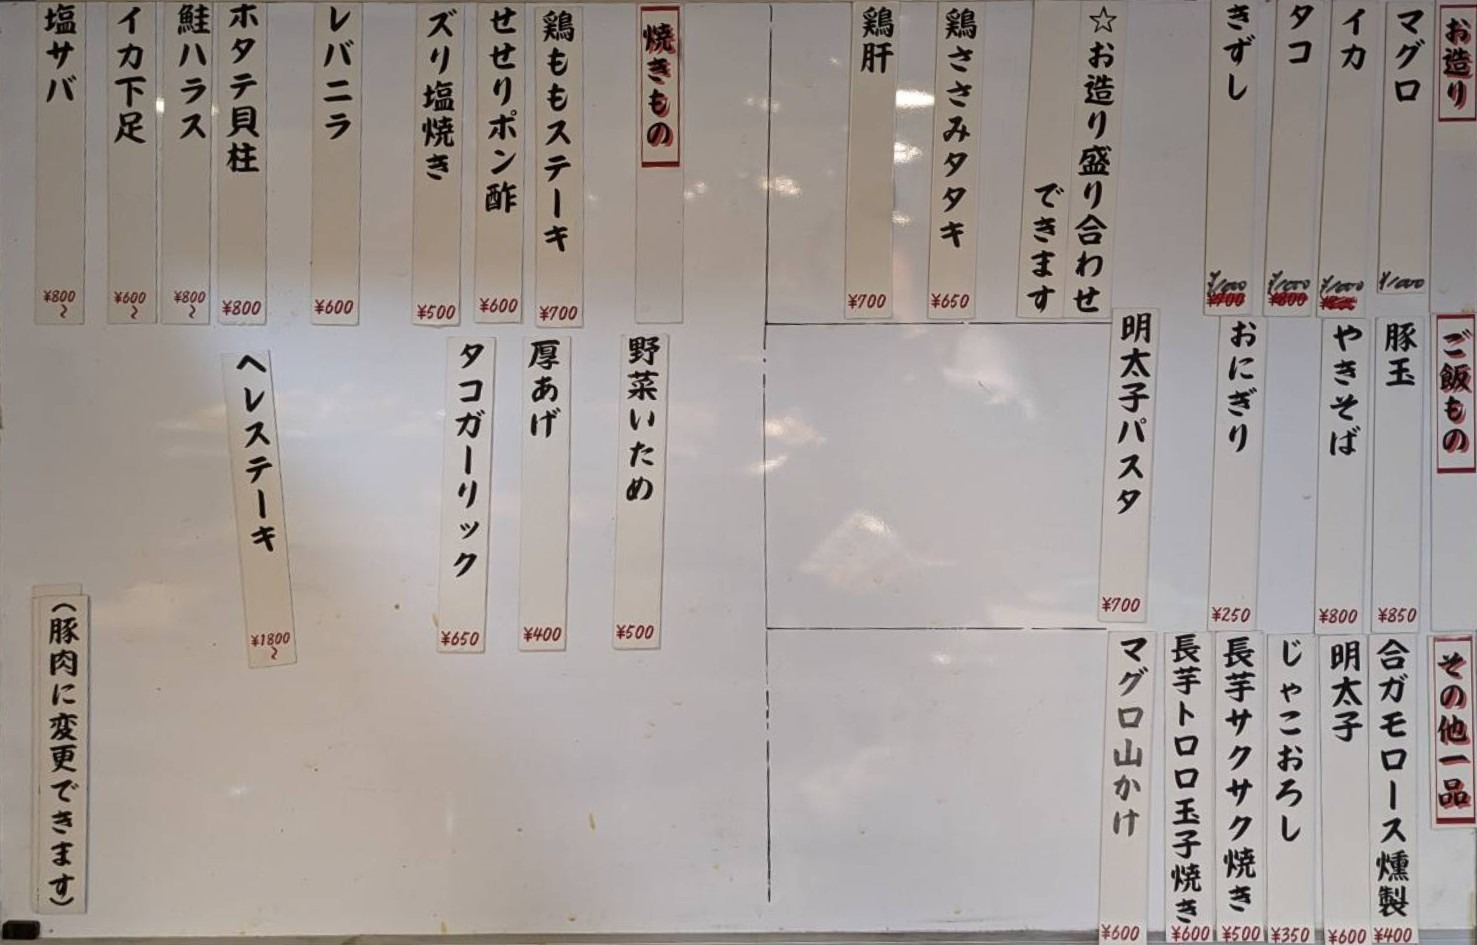 お造り
マグロ
¥1000
イカ
¥1000
タコ
¥1000
¥800
きずし
¥1000
¥700
☆お造り盛り合わせ
できます
鶏ささみタタキ
¥650
鶏肝
¥700
ご飯もの
豚玉
¥850
やきそば
¥800
おにぎり
¥250
明太子パスタ
¥700
その他一品
合ガモロース燻製
¥400
明太子
¥600
じゃこおろし
¥350
長芋サクサク焼き
¥500
長芋トロロ玉子焼き
¥600
マグロ山かけ
¥600
焼きもの
鶏ももステーキ
¥700
せせりポン酢
¥600
ズリ塩焼き
¥500
レバニラ
¥600
ホタテ貝柱
¥800
鮭ハラス
¥800〜
イカ下足
¥600〜
塩サバ
¥800〜
野菜いため
¥500
厚あげ
¥400
タコガーリック
¥650
ヘレステーキ
¥1800〜
(豚肉に変更できます)